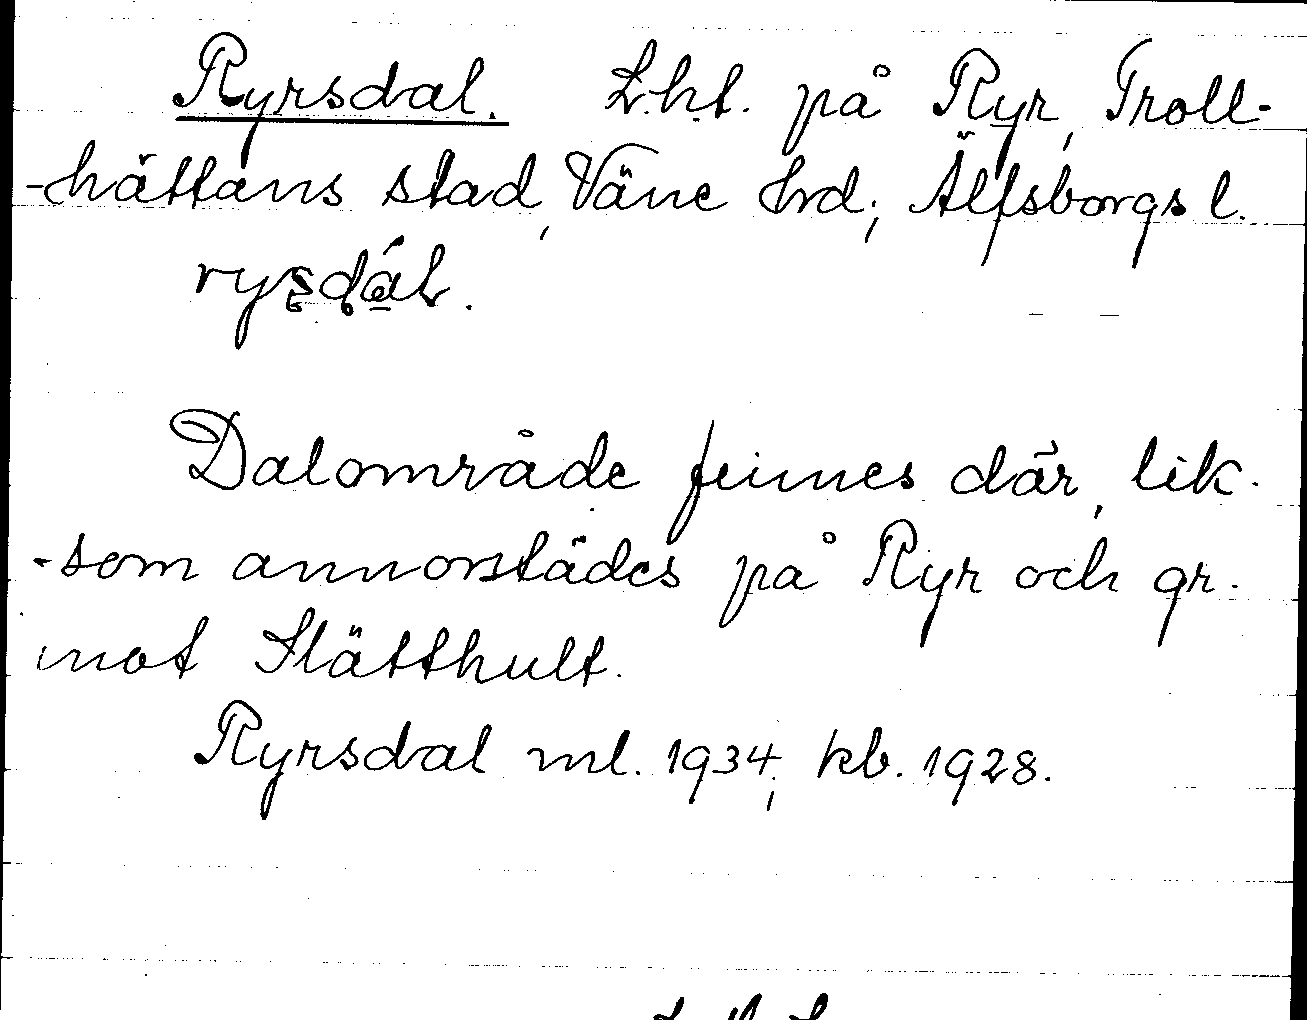 Ryrsdal. Lht. på Ryr, Troll-
-hättans stad, Väne hrd; Älfsborgs l.
Dalområde finnes där, lik-
-som annorstädes på Ryr och gr.
mot Slätthult.
Ryrsdal ml. 1934; kb. 1928.